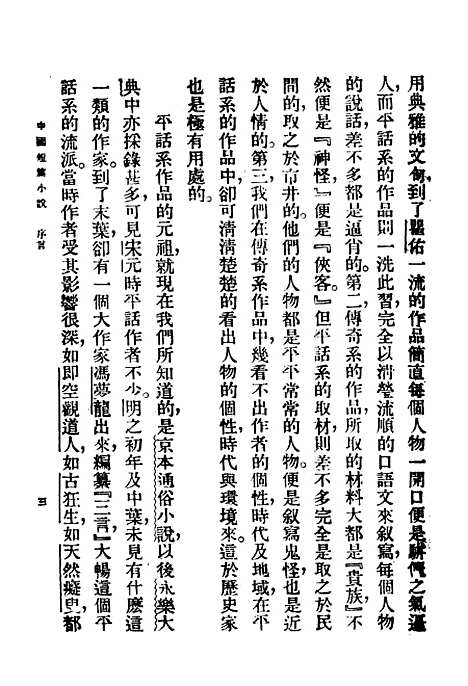 用典雅的文句，到了瞿佑一流的作品簡直每個人物一開口便是駢儷之氣逼
人，而平話系的作品則一洗此習，完全以清瑩流順的口語文來敘寫，每個人物
的說話，差不多都是逼肖的。第二，傳奇系的作品，所取的材料大都是『貴族』不
然便是『神怪』，便是『俠客。』但平話系的取材，則差不多完全是取之於民
間的，取之於市井的。他們的人物都是平平常常的人物。便是敘寫鬼怪也是近
於人情的。第三，我們在傳奇系作品中，幾看不出作者的個性時代及地域，在平
話系的作品中，卻可清清楚楚的看出人物的個性，時代與環境來。這於歷史家
也是極有用處的。
平話系作品的元祖，就現在我們所知道的，是京本通俗小說，以後永樂大
典中亦採錄甚多，可見宋元時平話作者不少。明之初年及中葉未見有什麼這
一類的作家。到了末葉卻有一個大作家馮夢龍出來，編纂『三言，』大暢這個平
話系的流派。當時作者受其影響很深，如即空觀道人，如古狂生，如天然癡叟，都
中國短篇小說　序言
五